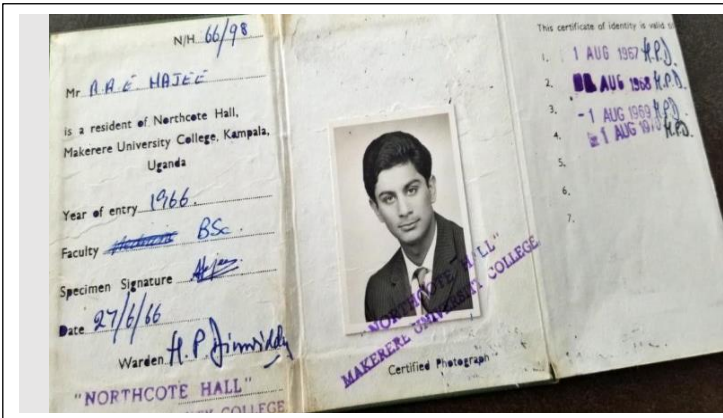 N/H 66/98
Mr A.A.E. HAJEE
is a resident of Northcote Hall,
Makerere University College, Kampala,
Uganda
Year of entry 1966
Faculty BSc.
Specimen Signature
Date 27/6/66
Warden H. P. Dinwiddy
"NORTHCOTE HALL"
COLLEGE
"NORTHCOTE HALL"
MAKERERE UNIVERSITY COLLEGE
Certified Photograph
This certificate of identity is valid
1. 1 AUG 1967 H.P.D.
2. AUG 1968 H.P.D.
3. -1 AUG 1969 H.P.D.
4. 1 AUG H.P.D.
5.
6.
7.